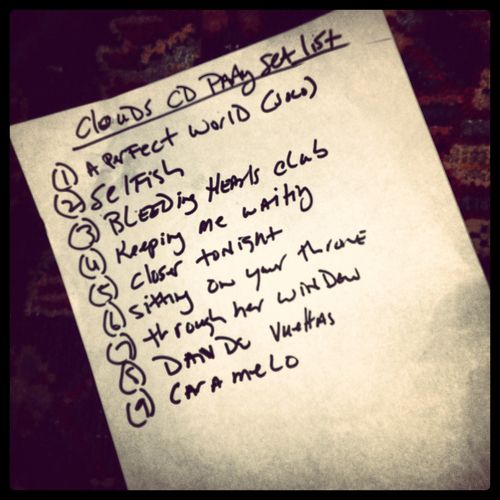 CLOUDS CD PARty Set list
① A PerFect WORLD (SOLO)
② SelFish
③ BLEEDing HeARts cluB
④ Keeping me WAiting
⑤ Closer toNight
⑥ Sitting on your throne
⑦ through her WiNDow
⑧ DANDO Vueltas
⑨ CARAmeLO